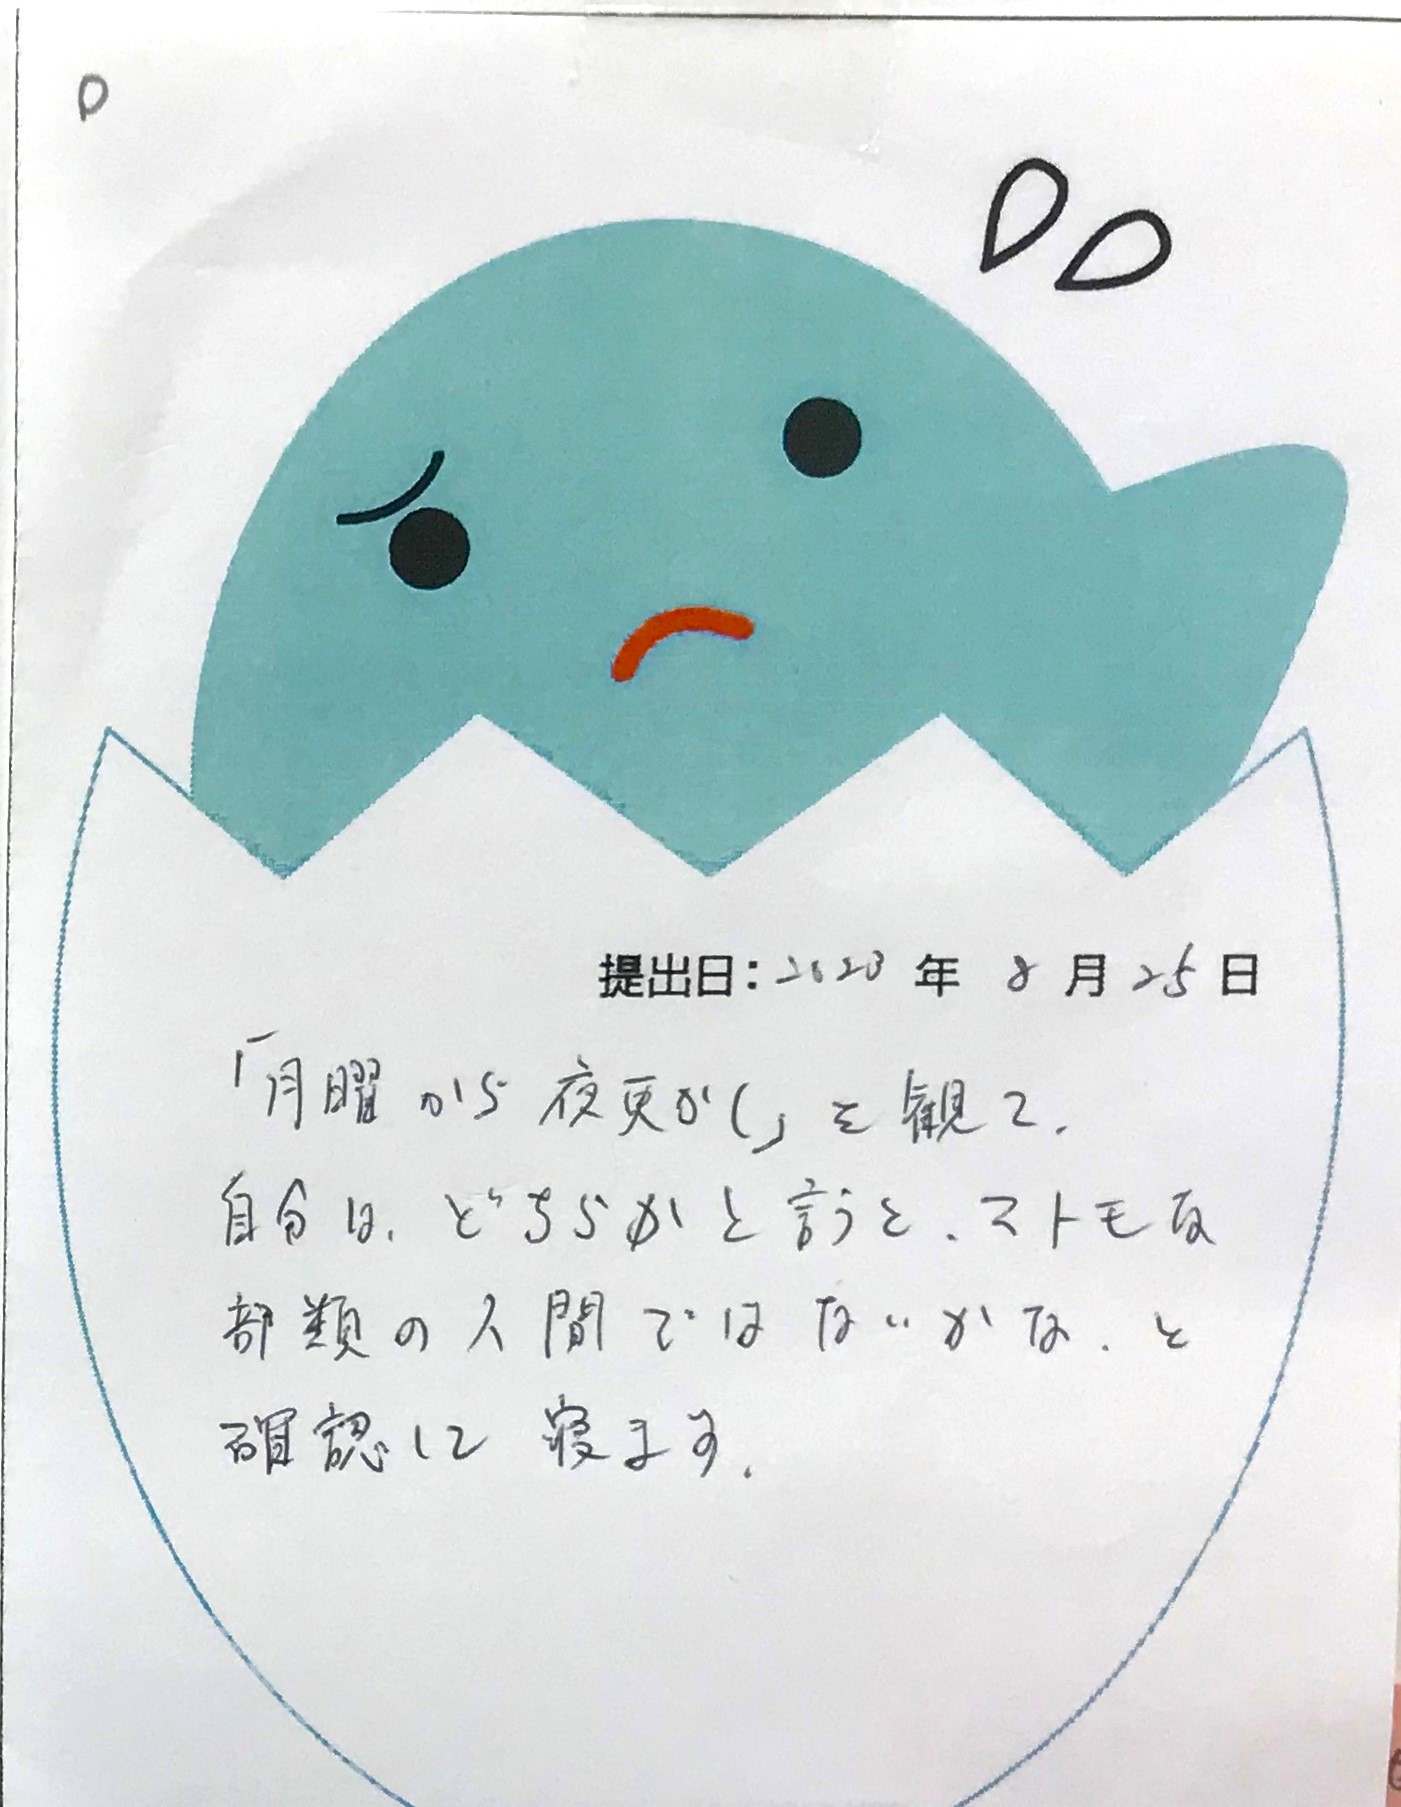 D
提出日：2023年 8月25日
「月曜から夜更かし」を観て、
自分は、どちらかと言うと、マトモな
部類の人間ではないかな、と
確認して寝ます。